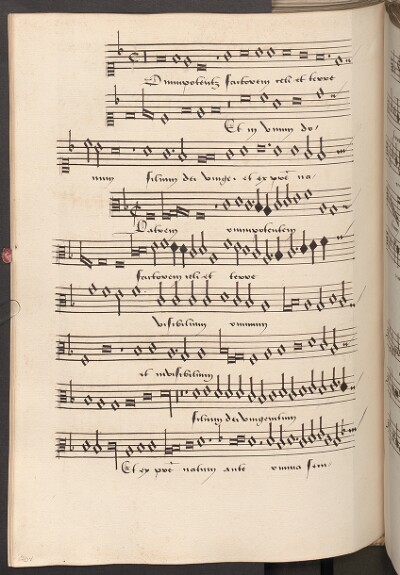 Omnipotentem factorem celi et terre
Et in unum do-
num filium dei unige. et ex pre na-
Patrem omnipotentem
factorem celi et terre
visibilium omnium
et invisibilium
filium dei unigenitum
Et ex pre natum ante omnia secu-